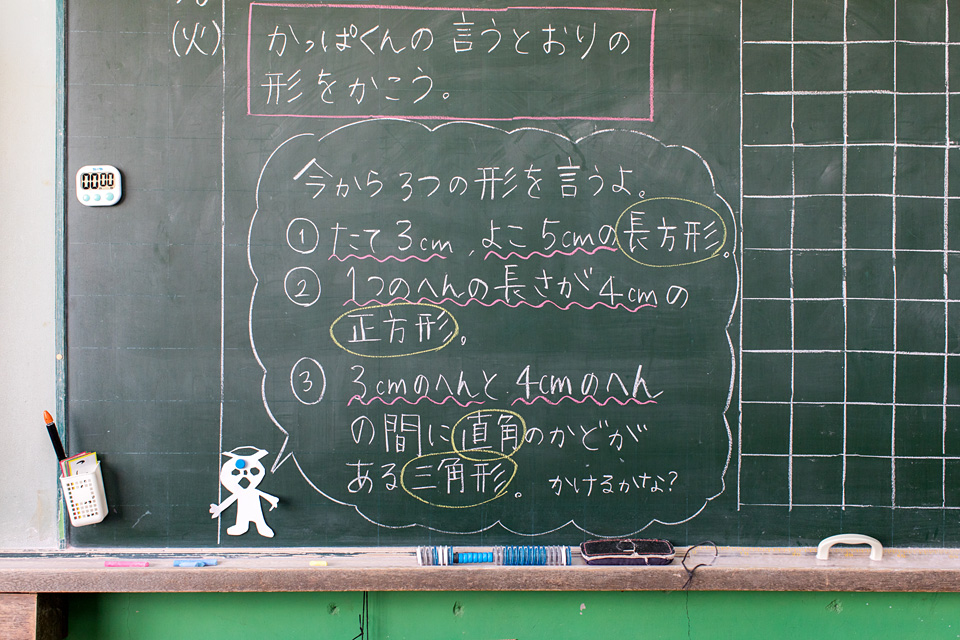 (火)
かっぱくんの言うとおりの
形をかこう。
00:00
今から3つの形を言うよ。
① たて3cm、よこ5cmの長方形。
② 1つのへんの長さが4cmの
正方形。
③ 3cmのへんと4cmのへん
の間に直角のかどが
ある三角形。 かけるかな?